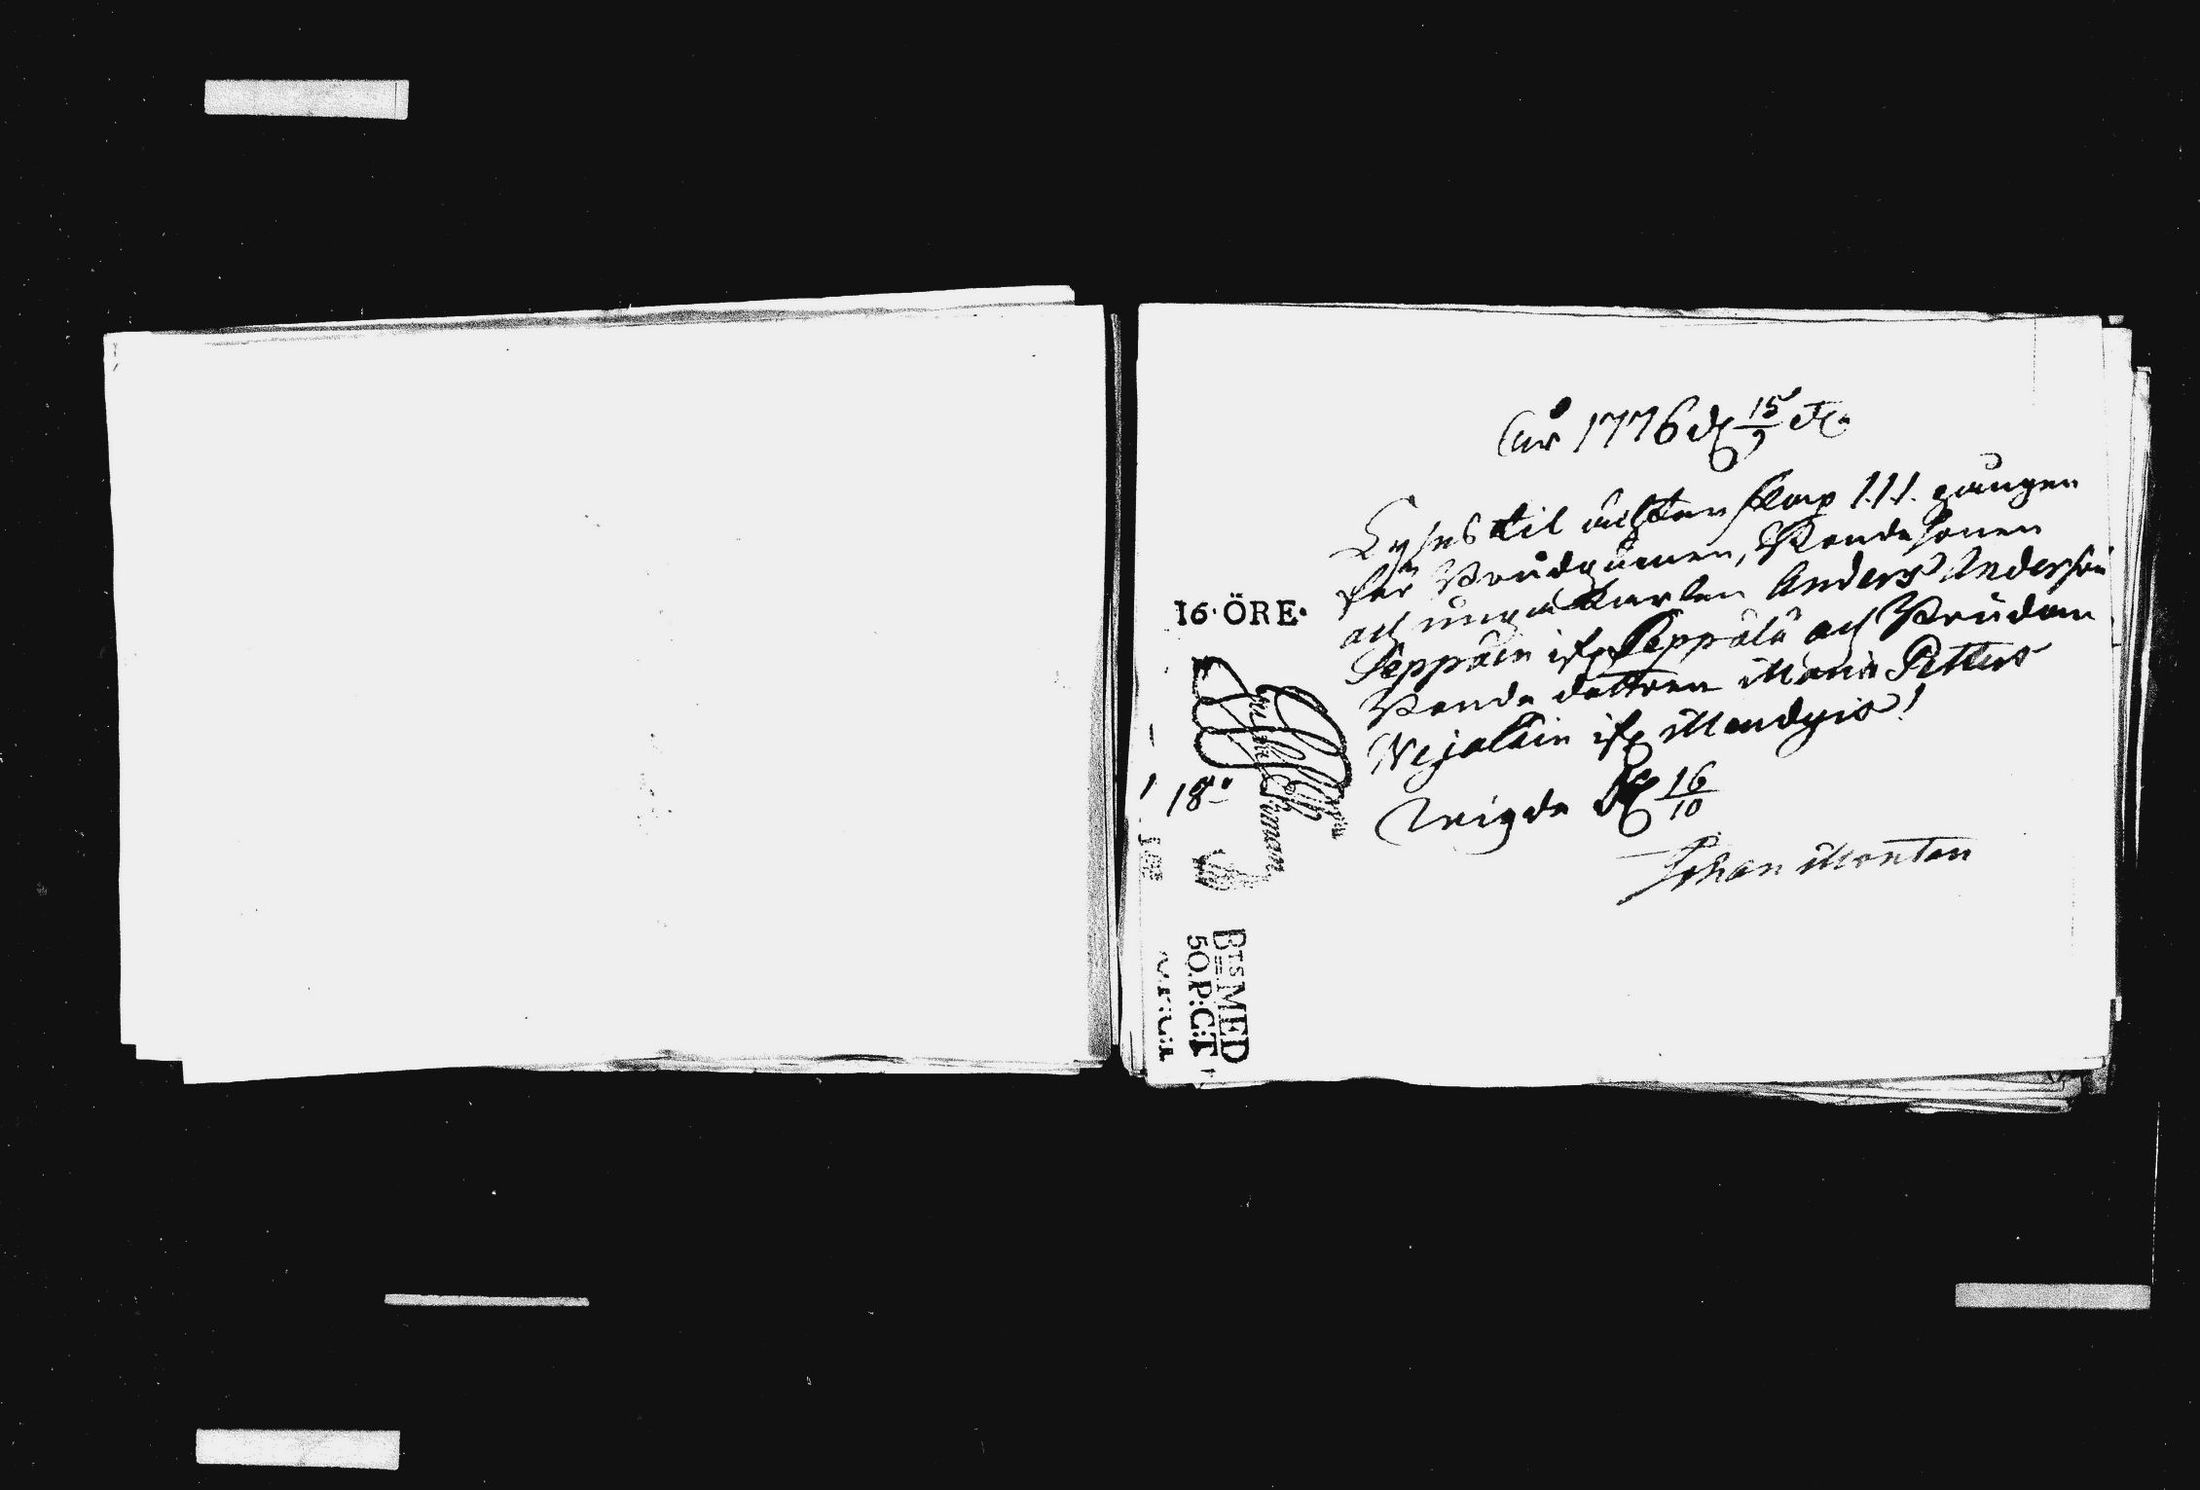 År 1776 d 15/9 etc.
Lyses til ächtenskap 1.1.1. gången
för Brudgumen, Bondesonen
och unga karlen Anders Andersson
Seppäin ifr Seppälä och Bruden
Bonde dottren Maria Petters
Nejolain ifr
Wigde d 16/10
Johan Montan
16·ÖRE·
18
B:TS MED
50.P:C:T